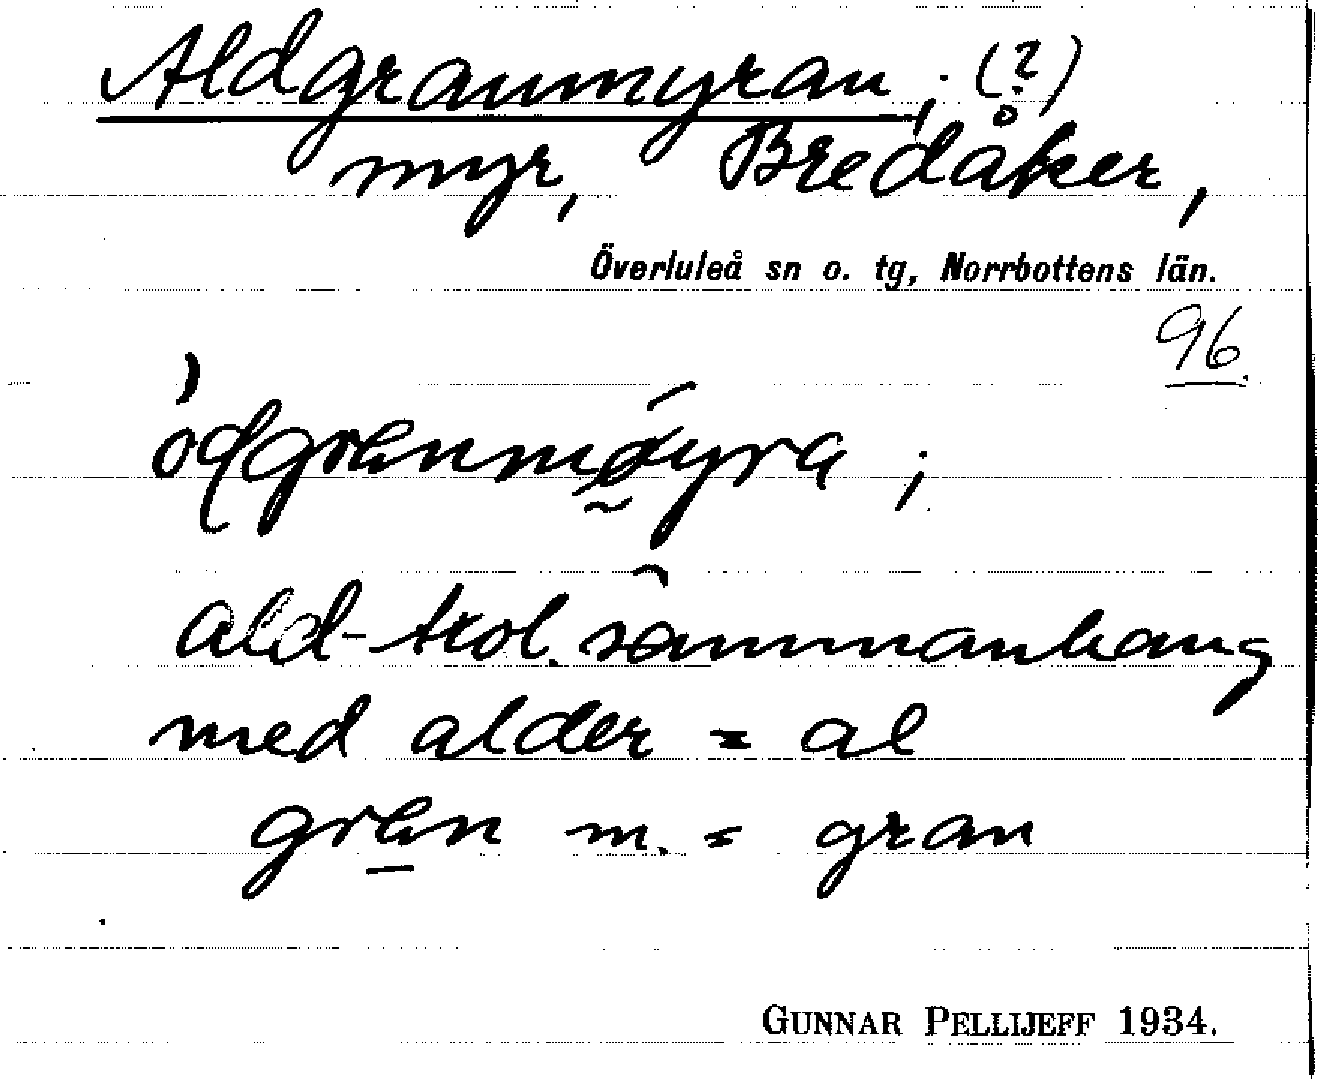 Aldgranmyran, (?)
myr, Bredåker,
Överluleå sn o. tg, Norrbottens län.
96.
ald- trol. i sammanhang
med alder = al
gran m. = gran
GUNNAR PELLIJEFF 1934.